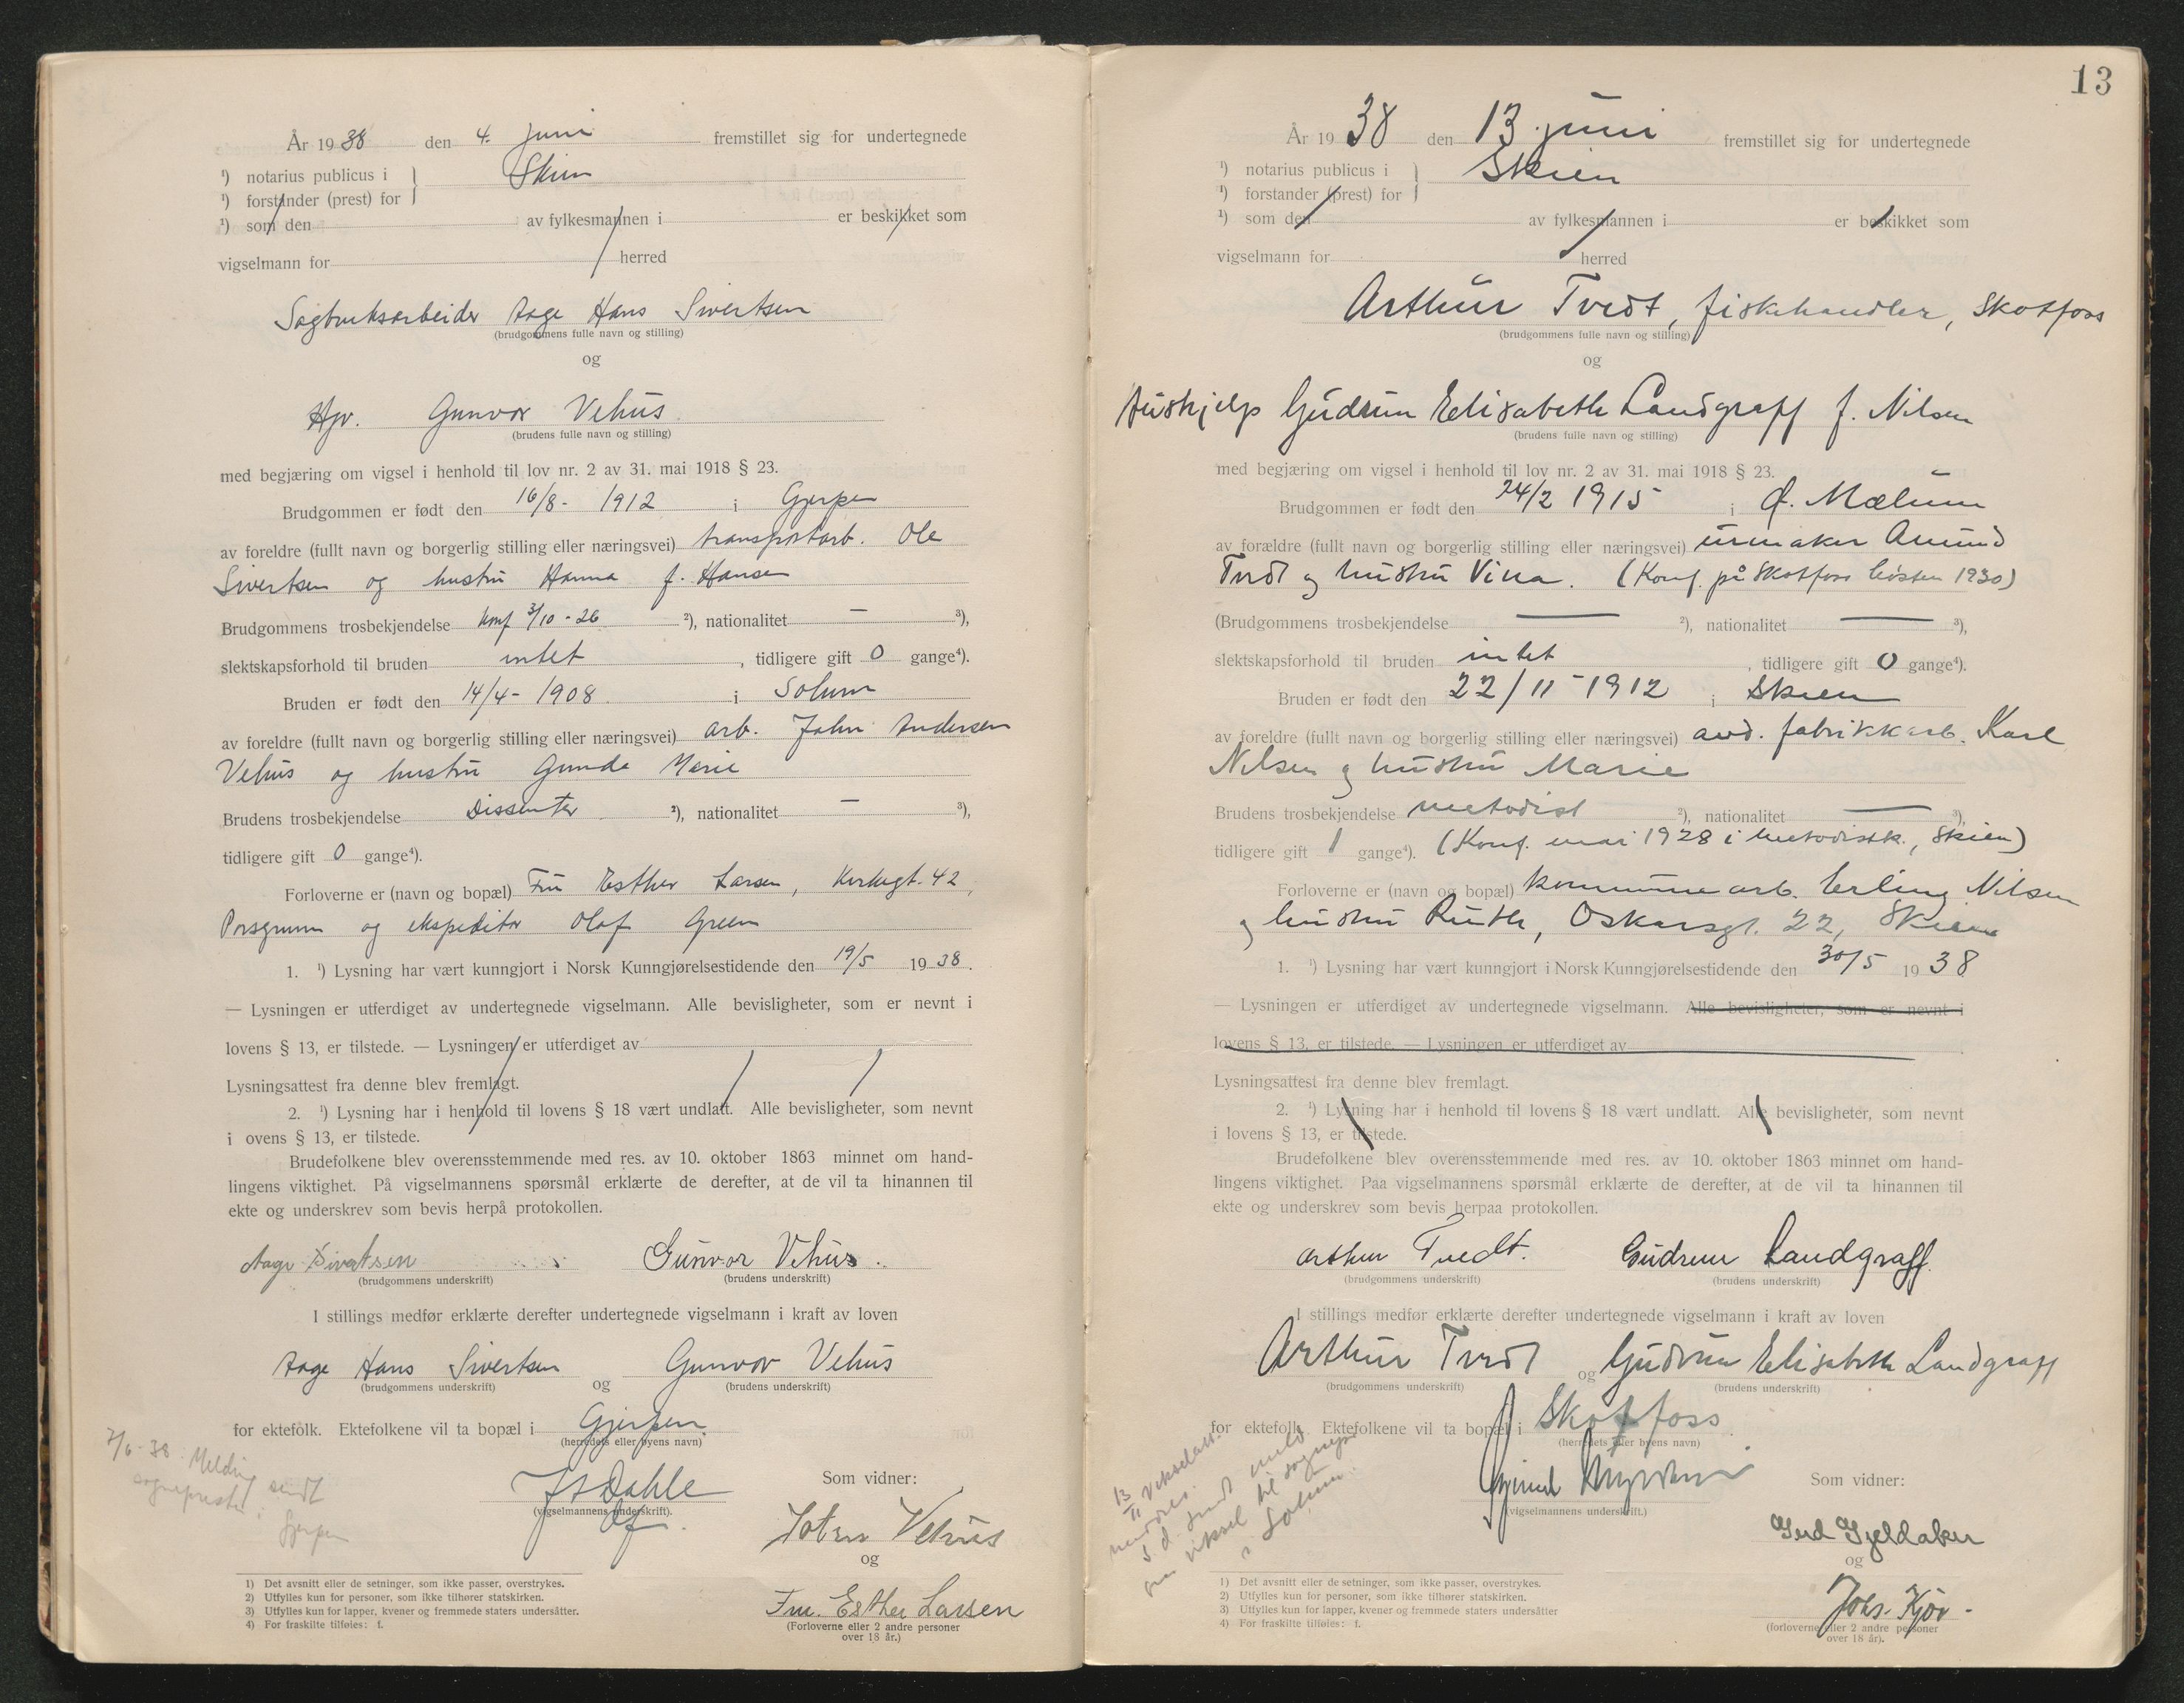 År 1938 den 4. juni fremstillet sig for undertegnede
¹) notarius publicus i } Skien
¹) forstander (prest) for
¹) som den av fylkesmannen i er beskikket som
vigselmann for herred
Sagbruksarbeider Aage Hans Sivertsen
(brudgommens fulle navn og stilling)
og
Hpr. Gunvor Vehus
(brudens fulle navn og stilling)
med begjæring om vigsel i henhold til lov nr. 2 av 31. mai 1918 § 23.
Brudgommen er født den 16/8 - 1912 i Gjerpen
av foreldre (fullt navn og borgerlig stilling eller næringsvei) transportarb. Ole
Sivertsen og hustru Hanna f. Hansen
Brudgommens trosbekjendelse konf 3/10 - 26 ²), nationalitet — ³),
slektskapsforhold til bruden intet, tidligere gift 0 gange⁴).
Bruden er født den 14/4 - 1908 i Solum
av foreldre (fullt navn og borgerlig stilling eller næringsvei) arb. John Andersen
Vehus og hustru Gunda Marie
Brudens trosbekjendelse Dissenter ²), nationalitet — ³),
tidligere gift 0 gange⁴).
Forloverne er (navn og bopæl) Fru Esther Larsen, Kirkegt. 42,
Porsgrunn og ekspeditør Olaf Green
1. ¹) Lysning har vært kunngjort i Norsk Kunngjørelsestidende den 19/5 1938.
— Lysningen er utferdiget av undertegnede vigselmann. Alle bevisligheter, som er nevnt i
lovens § 13, er tilstede. — Lysningen er utferdiget av
Lysningsattest fra denne blev fremlagt.
2. ¹) Lysning har i henhold til lovens § 18 vært undlatt. Alle bevisligheter, som nevnt
i ovens § 13, er tilstede.
Brudefolkene blev overensstemmende med res. av 10. oktober 1863 minnet om hand-
lingens viktighet. På vigselmannens spørsmål erklærte de derefter, at de vil ta hinannen til
ekte og underskrev som bevis herpå protokollen.
Aage Sivertsen Gunvor Vehus.
(brudgommens underskrift) (brudens underskrift)
I stillings medfør erklærte derefter undertegnede vigselmann i kraft av loven
Aage Hans Sivertsen og Gunvor Vehus
(brudgommens underskrift) (brudens underskrift)
for ektefolk. Ektefolkene vil ta bopæl i Gjerpen.
(herredets eller byens navn)
7/6-38. Melding
sendt
sogneprest i
Gjerpen
Dahle
(vigselmannens underskrift).
Som vidner:
Vehus
og
Fru. Esther Larsen
(Forloverne eller 2 andre personer
over 18 år.)
1) Det avsnitt eller de setninger, som ikke passer, overstrykes.
2) Utfylles kun for personer, som ikke tilhører statskirken.
3) Utfylles kun for lapper, kvener og fremmede staters undersåtter.
4) For fraskilte tilføies: f.
13
År 1938 den 13. juni fremstillet sig for undertegnede
¹) notarius publicus i } Skien
¹) forstander (prest) for
¹) som den av fylkesmannen i er beskikket som
vigselmann for herred
Arthur Tvedt, fiskehandler, Skotfoss
(brudgommens fulle navn og stilling)
og
Hushjelp Gudrun Elisabeth Landgraff f. Nilsen
(brudens fulle navn og stilling)
med begjæring om vigsel i henhold til lov nr. 2 av 31. mai 1918 § 23.
Brudgommen er født den 24/2 1915 i Ø. Mælum
av forældre (fullt navn og borgerlig stilling eller næringsvei) urmaker Amund
Tvedt og hustru Vina. (Konf. på Skotfoss høsten 1930)
(Brudgommens trosbekjendelse — ²), nationalitet — ³),
slektskapsforhold til bruden intet, tidligere gift 0 gange⁴).
Bruden er født den 22/11 - 1912 i Skien
av foreldre (fullt navn og borgerlig stilling eller næringsvei) avd. fabrikkarb. Karl
Nilsen og hustru Marie
Brudens trosbekjendelse metodist ²), nationalitet — ³),
tidligere gift 1 gange⁴). (Konf. mai 1928 i metodistk., Skien)
Forloverne er (navn og bopæl) kommunearb. Erling Nilsen
og hustru Ruth, Oskarsgt. 22, Skien
1. ¹) Lysning har vært kunngjort i Norsk Kunngjørelsestidende den 30/5 1938
— Lysningen er utferdiget av undertegnede vigselmann. Alle bevisligheter, som er nevnt i
lovens § 13, er tilstede. — Lysningen er utferdiget av
Lysningsattest fra denne blev fremlagt.
2. ¹) Lysning har i henhold til lovens § 18 vært undlatt. Alle bevisligheter, som nevnt
i lovens § 13, er tilstede.
Brudefolkene blev overensstemmende med res. av 10. oktober 1863 minnet om hand-
lingens viktighet. Paa vigselmannens spørsmål erklærte de derefter, at de vil ta hinannen til
ekte og underskrev som bevis herpaa protokollen.
Arthur Tvedt. Gudrun Landgraff.
(brudgommens underskrift) (brudens underskrift)
I stillings medfør erklærte derefter undertegnede vigselmann i kraft av loven
Arthur Tvedt og Gudrun Elisabeth Landgraff
(brudgommens underskrift) (brudens underskrift)
for ektefolk. Ektefolkene vil ta bopæl i Skotfoss
(herredets eller byens navn)
s. d. sendt meld.
om vigsel til sognepr.
i Solum.
(vigselmannens underskrift.)
Som vidner:
Gerd Gjeldaker
og
Johs. Kjær.
(forloverne eller 2 andre personer
over 18 år).
1) Det avsnitt eller de setninger, som ikke passer, overstrykes.
2) Utfylles kun for personer, som ikke tilhører statskirken.
3) Utfylles kun for lapper, kvener og fremmede staters undersåtter
4) For fraskilte tilføies: f.